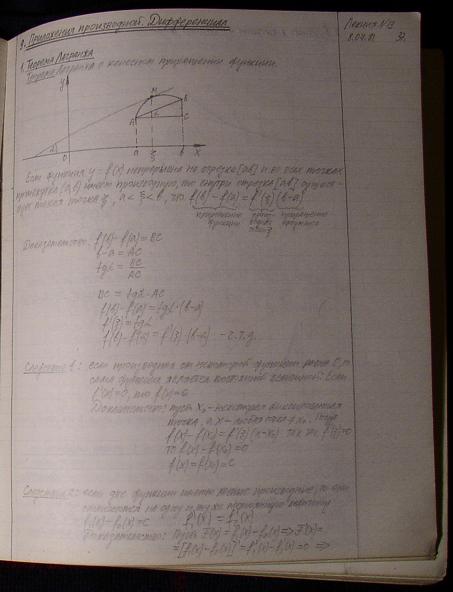 9. Приложения производной. Дифференциал
Лекция №13
8.04.81
1. Теорема Лагранжа
Теорема Лагранжа о конечном приращении функции.
y
M
B
A
C
α
0
a
ξ
b
x
Если функция y = f(x) непрерывна на отрезке [a,b] и во всех точках
промежутка (a,b) имеет производную, то внутри отрезка [a,b] сущест-
вует такая точка ξ, a < ξ < b, что f(b) - f(a) = f'(ξ)(b-a)
приращение функции
приращение аргумента
Доказательство: f(b) - f(a) = BC
b - a = AC
tgα = BC/AC
BC = tgα · AC
f(b) - f(a) = tgα · (b-a)
f'(ξ) = tgα
f(b) - f(a) = f'(ξ)·(b-a) - ч.т.д.
Следствие 1: если производная от некоторой функции равна 0, то
сама функция является постоянной величиной: Если
f'(x)=0, то f(x)=c
Доказательство: пусть x₀ - некоторая фиксированная
точка, а x - любая точка ≠ x₀. Тогда
f(x) - f(x₀) = f'(ξ)(x-x₀) так как f'(ξ)=0
то f(x) - f(x₀) = 0
f(x) = f(x₀) = C
Следствие 2: если две функции имеют равные производные, то они
отличаются на одну и ту же постоянную величину
f₁(x) - f₂(x) = C f₁'(x) = f₂'(x)
Доказательство: Пусть F(x) = f₁(x) - f₂(x) => F'(x) =
= [f₁(x) - f₂(x)]' = f₁'(x) - f₂'(x) = 0 =>